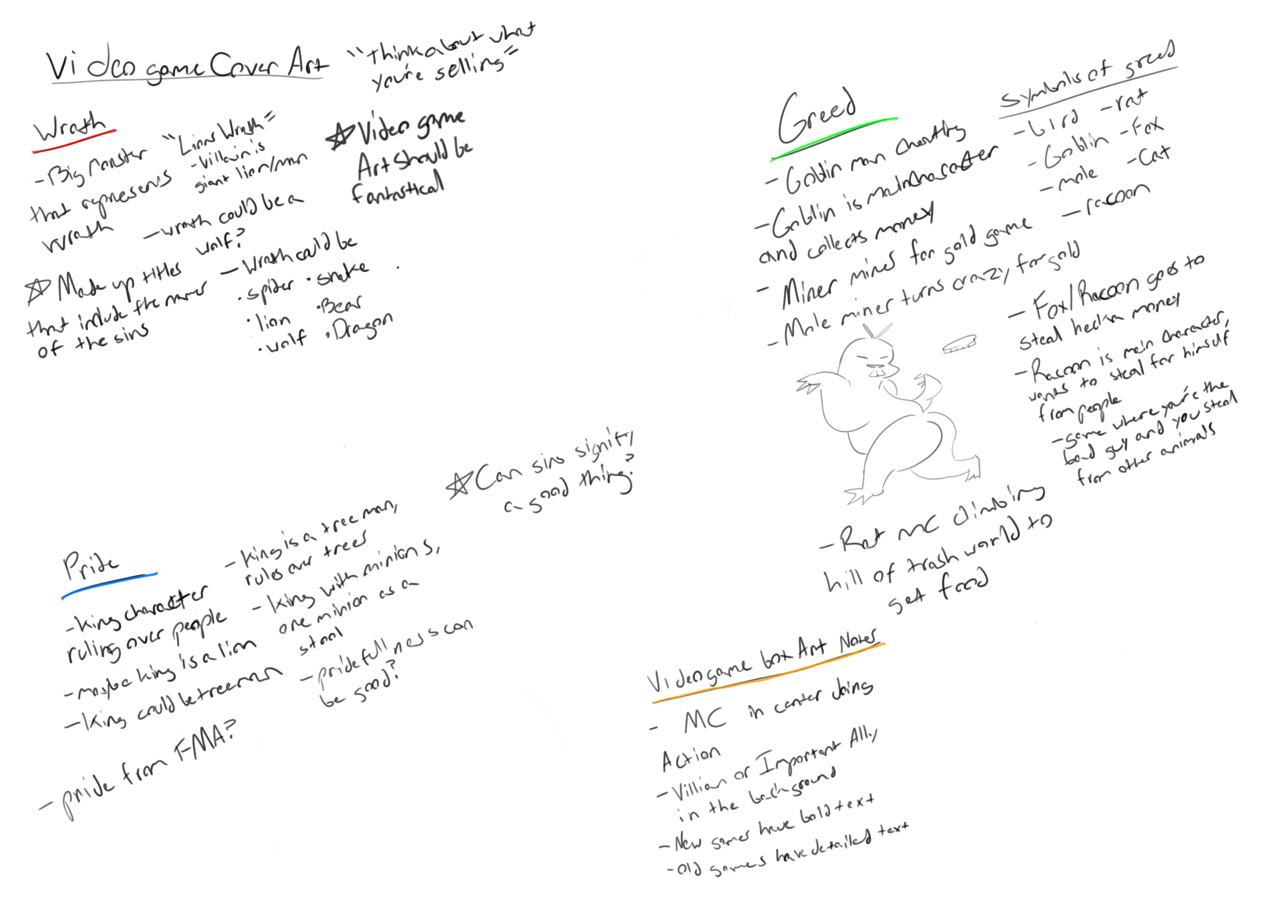 Video game Cover Art
"Think about what
you're selling"
Wrath
- Big Monster
that represents
Wrath
"Lions Wrath"
- Villain is
giant lion/man
- wrath could be a
wolf?
☆ Video game
Art Should be
fantastical
☆ Made up titles
that include the names
of the sins
- Wrath could be
· spider
· snake
· lion
· Bear
· wolf
· Dragon
Pride
- King character
ruling over people
- maybe king is a lion
- King could be treeman
- pride from FMA?
- King is a tree man,
rules over trees
- King with minions,
one minion as a
stool
- pridefullness can
be good?
☆ Can sins signify
a good thing?
Greed
- Goblin man
- Goblin is main character
and collects money
- Miner mines for gold game
- Mole miner turns crazy for gold
Symbols of greed
- bird
- rat
- Goblin
- Fox
- mole
- Cat
- racoon
- Fox/Racoon goes to
steal hecka money
- Racoon is main character,
wants to steal for himself
from people
- game where you're the
bad guy and you steal
from other animals
- Rat MC climbing
hill of trash world to
get food
Videogame box Art Notes
- MC in center doing
Action
- Villian or Important Ally
in the background
- New games have bold text
- Old games have detailed text